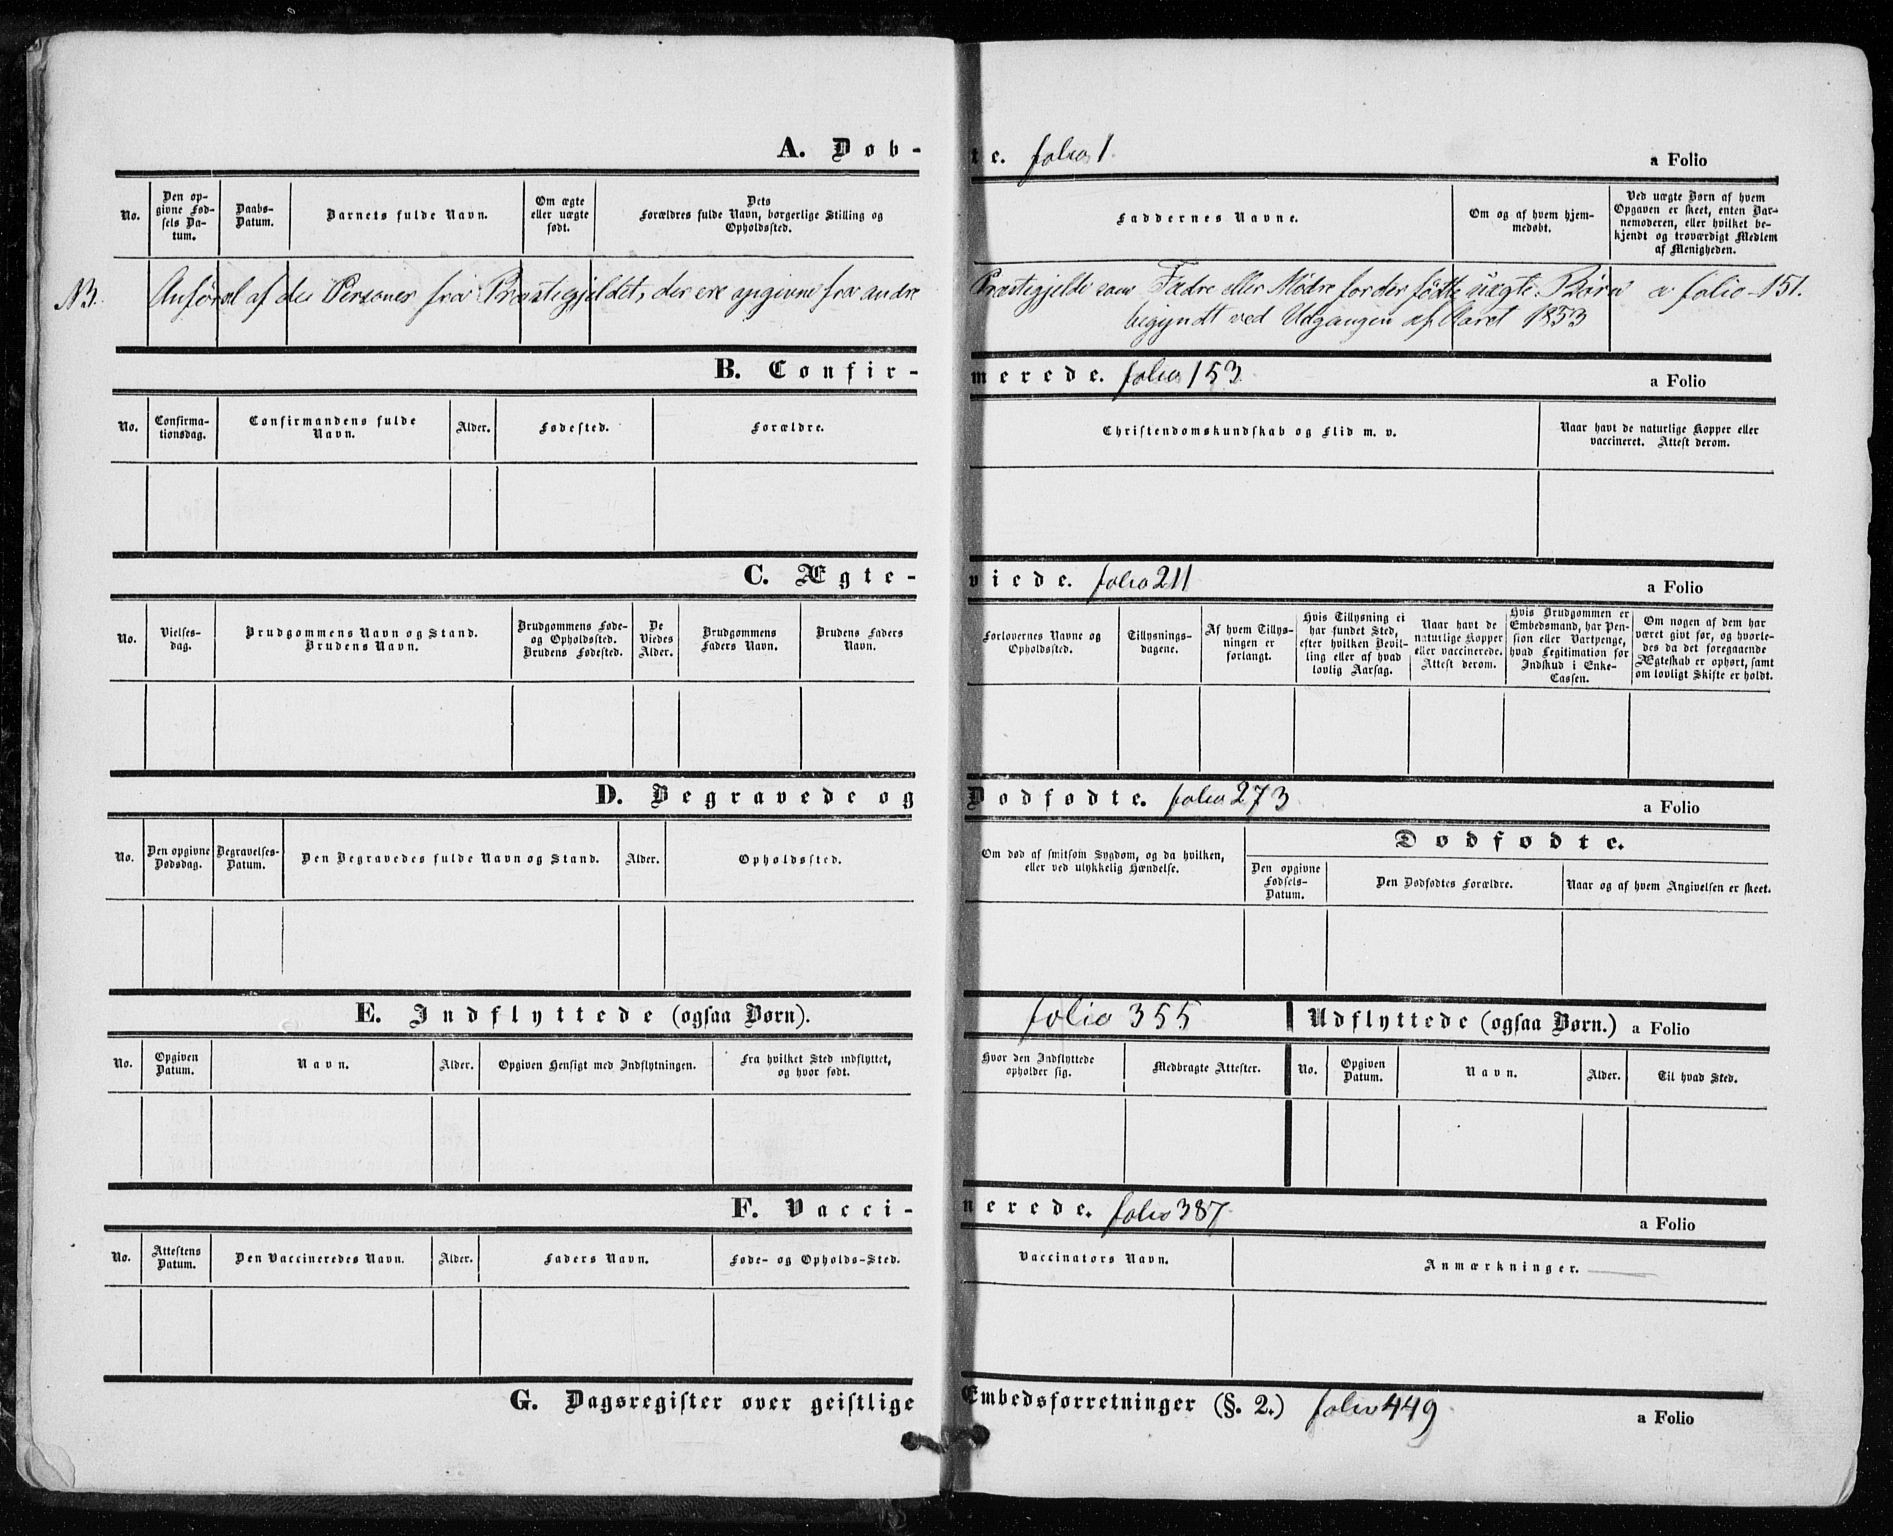 A. Døbte. folio 1. a Folio
No.
Den opgivne Fødsels Datum.
Daabs-Datum.
Barnets fulde Navn.
Om ægte eller uægte født.
Dets Forældres fulde Navn, borgerlige Stilling og Opholdssted.
Faddernes Navne.
Om og af hvem hjemmedøbt.
Ved uægte Børn af hvem Opgaven er skeet, enten Barnemoderen, eller hvilket bekjendt og troværdigt Medlem af Menigheden.
NB. Anførsel af de Personer fra Præstegjeldet, der ere opgivne fra andre Præstegjelde som Fædre eller Mødre for der fødte uægte Børn a folio 151.
begyndt ved Udgangen af Aaret 1853
B. Confirmerede. folio 153 a Folio
No.
Confirmationsdag.
Confirmandens fulde Navn.
Alder.
Fødested.
Forældre.
Christendomskundskab og Flid m. v.
Naar havt de naturlige Kopper eller vaccineret. Attest derom.
C. Ægteviede. folio 211 a Folio
No.
Vielses-dag.
Brudgommens Navn og Stand. Brudens Navn.
Brudgommens Føde- og Opholdssted. Brudens Fødested.
De Viedes Alder.
Brudgommens Faders Navn.
Brudens Faders Navn.
Forlovernes Navne og Opholdssted.
Tillysnings-dagene.
Af hvem Tillysningen er forlangt.
Hvis Tillysning ei har fundet Sted, efter hvilken Bevilling eller af hvad lovlig Aarsag.
Naar havt de naturlige Kopper eller vaccinerede. Attest derom.
Hvis Brudgommen er Embedsmand, har Pension eller Vartpenge, hvad Legitimation for Indskud i Enke-Cassen.
Om nogen af dem har været givt før, og hvorledes da det foregaaende Ægteskab er ophørt, samt om lovligt Skifte er holdt.
D. Begravede og Dødfødte. folio 273 a Folio
No.
Den opgivne Dødsdag.
Begravelses-Datum.
Den Begravedes fulde Navn og Stand.
Alder.
Opholdssted.
Om død af smitsom Sygdom, og da hvilken, eller ved ulykkelig Hændelse.
Dødfødte.
Den opgivne Fødsels-Datum.
Den Dødfødtes Forældre.
Naar og af hvem Angivelsen er skeet.
E. Indflyttede (ogsaa Børn). folio 355 Udflyttede (ogsaa Børn.) a Folio
No.
Opgiven Datum.
Navn.
Alder.
Opgiven Hensigt med Indflytningen.
Fra hvilket Sted indflyttet, og hvor født.
Hvor den Indflyttede opholder sig.
Medbragte Attester.
No.
Opgiven Datum.
Navn.
Alder.
Til hvad Sted.
F. Vaccinerede. folio 387 a Folio
No.
Attestens Datum.
Den Vaccineredes Navn.
Alder.
Faders Navn.
Føde- og Opholds-Sted.
Vaccinators Navn.
Anmærkninger.
G. Dagsregister over geistlige Embedsforretninger (§. 2.) folio 449 a Folio